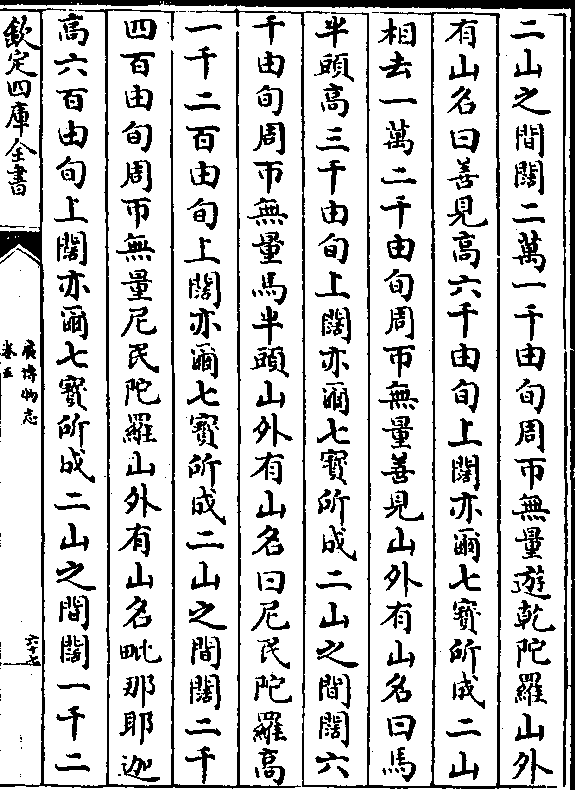 二山之間闊二萬一千由旬周帀無量遊乾陀羅山外
有山名曰善見高六千由旬上闊亦爾七寳所成二山
相去一萬二千由旬周帀無量善見山外有山名曰馬
半頭高三千由旬上闊亦爾七寳所成二山之間闊六
千由旬周帀無量馬半頭山外有山名曰尼民陀羅高
一千二百由旬上闊亦爾七寳所成二山之間闊二千
四百由旬周帀無量尼民陀羅山外有山名毗那耶迦
高六百由旬上闊亦爾七寳所成二山之間闊一千二
欽定四庫全書
廣博物志
卷五
六十七